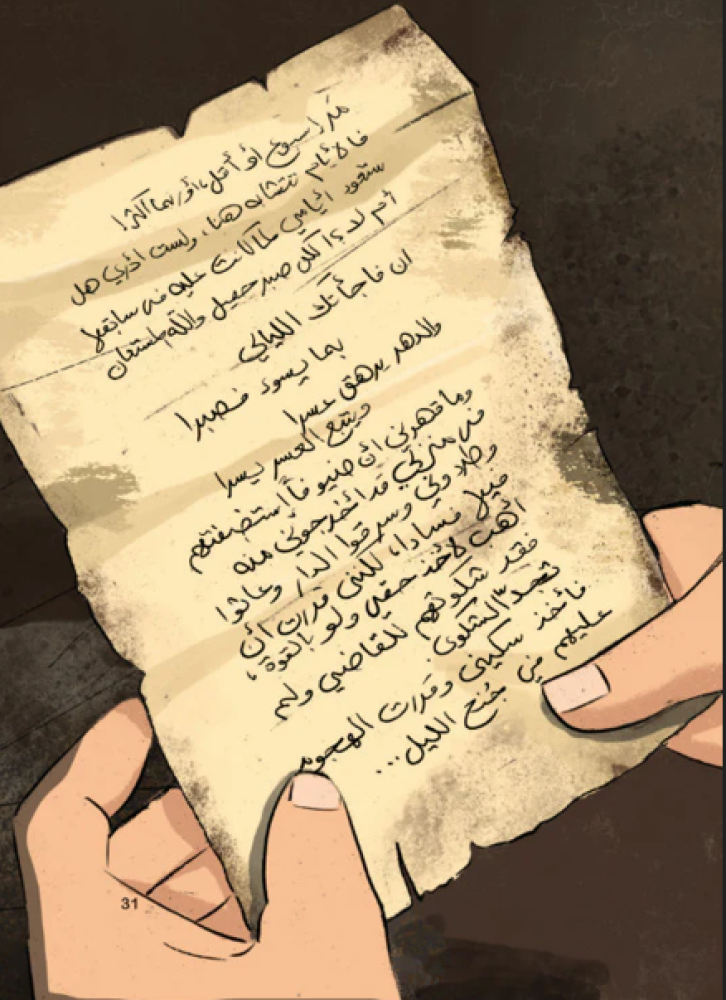 مر أسبوع أو أقل، أو ربما أكثر!
فالأيام تتشابه هنا، ولست أدري هل
ستعود أيامي كما كانت عليه من سابقها
أم لا؟ لكن صبر جميل والله المستعان
ان فاجأتك الليالي
بما يسوء فصبرا
فالدهر يرهق عسرا
ويتبع العسر يسرا
وما قهرني أن ضيوفاً استضفتهم
في منزلي قد أخرجوني منه
وطردوني وسرقوا الدار وعاثوا
فيها فسادا، لكنني قررت أن
أذهب لأخذ حقي ولو بالقوة،
فقد شكوتهم للقاضي ولم
تجدِ الشكوى
فأخذت سكيني وقررت الهجوم
عليهم في جُنح الليل...
31